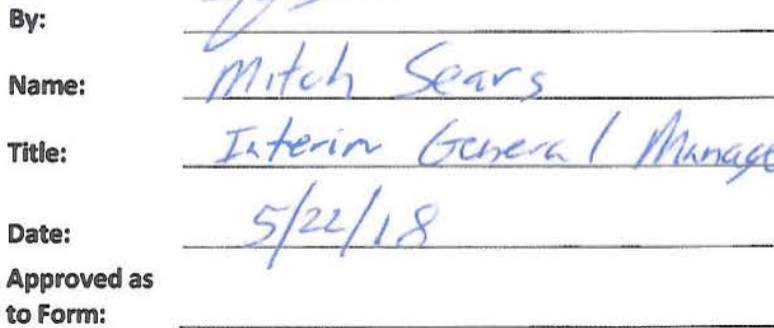 By:
Name: Mitch Sears
Title: Interim General Manage
Date: 5/22/18
Approved as
to Form: